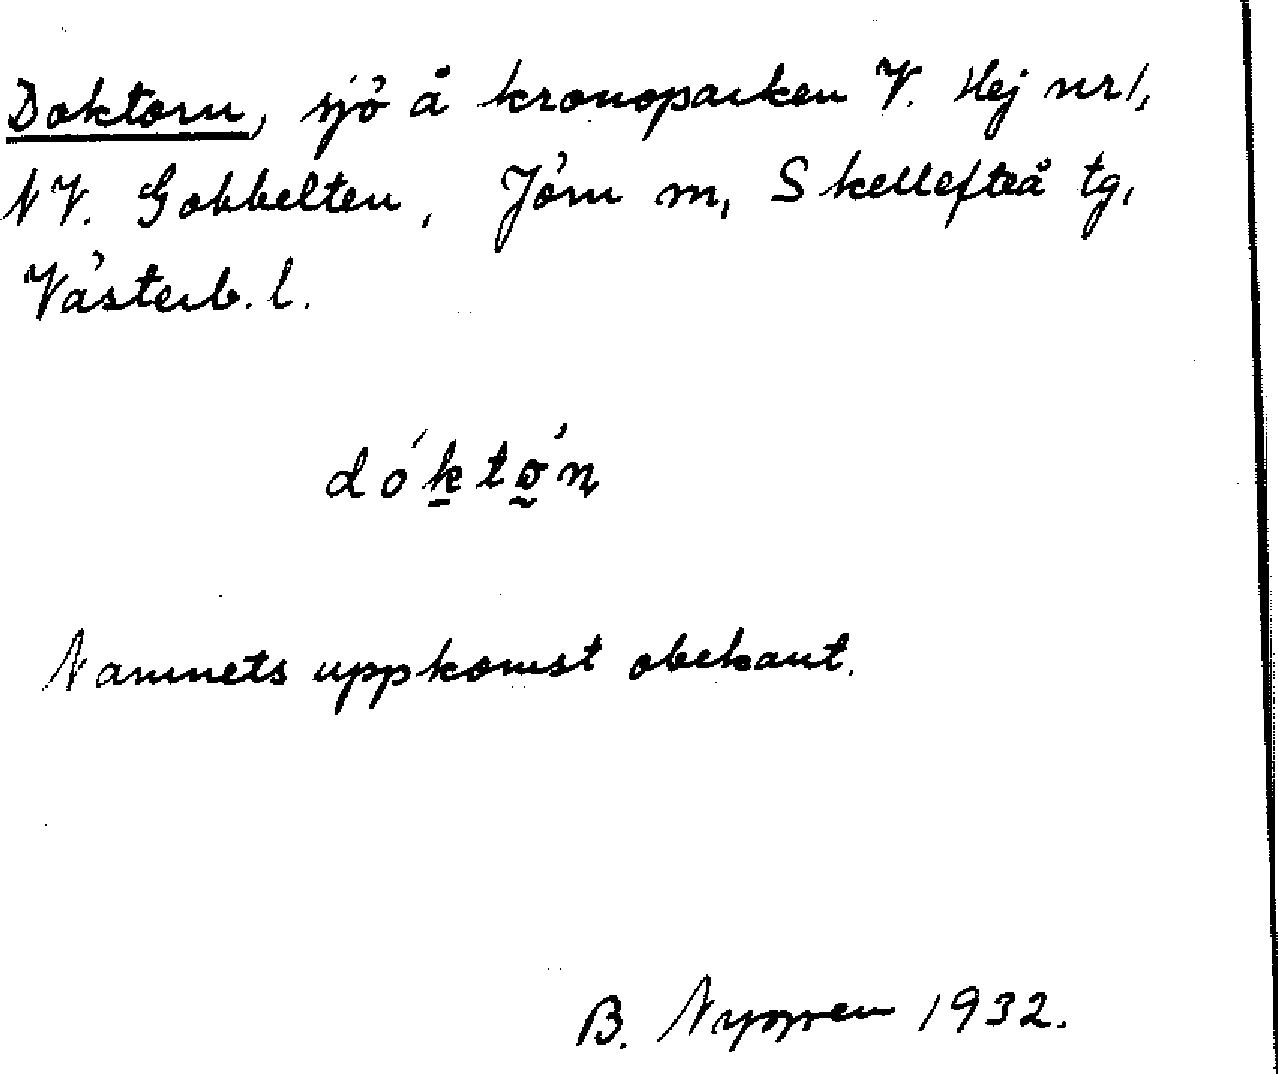 Doktorn, sjö å kronoparken V. Hej nr 1,
NV. Gobbelten, Jörn m, Skellefteå tg,
Västerb. l.
dóktón
Namnets uppkomst obekant.
B. Nygren 1932.